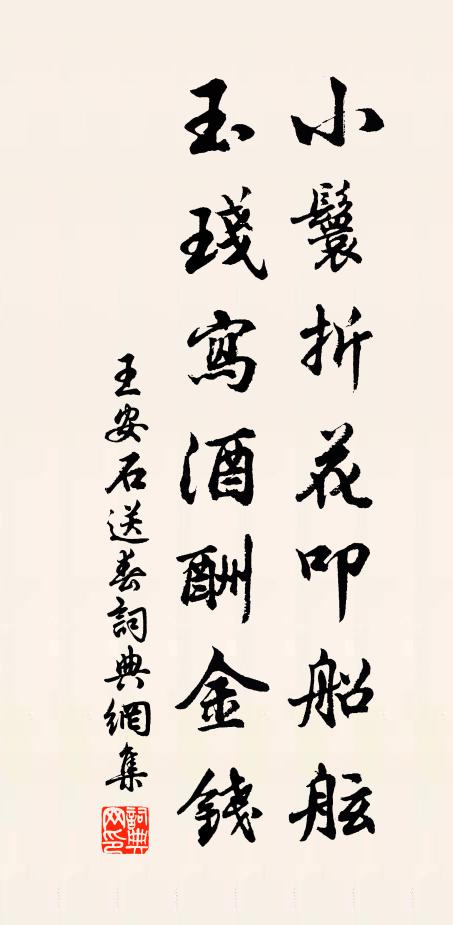 小鬟折花叩船舷
玉琖寫酒酬金錢
王安石送春詞典網集
詞典網印